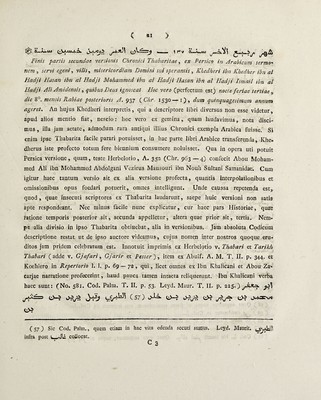 ( 21 )
شهر ربيع الاخر سنة ٩٣٠ — وكان العمر يوميذ خمسين سنة
Finis partis secundae versionis Chronici Thabaritae, ex Persico in Arabicum sermo-
nem, servi egeni, vilis, misericordiam Domini sui sperantis, Khedheri ibn Khedher ibn al
Hadji Hasan ibn al Hadji Mohammed ibn al Hadji Hasan ibn al Hadji Ismail ibn al
Hadji Ali Amidensis, quibus Deus ignoscat. Hoc vero (perfectum est) nocte feriae tertiae,
die 8°. mensis Rabiae posterioris A. 937 (Chr. 1530—1), dum quinquagesimum annum
ageret. An hujus Khedheri interpretis, qui a descriptore libri diversus non esse videtur,
apud alios mentio fiat, nescio: hoc vero ex gemina, quam laudavimus, nota disci-
mus, illa jam aetate, admodum rara antiqui illius Chronici exempla Arabica fuisse. Si
enim ipse Thabarita facile parari potuisset, in hac parte libri Arabice transferenda, Khe-
dherus iste profecto totum fere biennium consumere noluisset. Qua in opera uti potuit
Persica versione, quam, teste Herbelotio, A. 352 (Chr. 963—4) confecit Abou Moham-
med Ali ibn Mohammed Abdolgani Vezirus Mansouri ibn Nouh Sultani Samanidae. Cum
igitur haec tantum versio sit ex alia versione profecta, quantis interpolationibus et
omissionibus opus foedari potuerit, omnes intelligunt. Unde caussa repetenda est,
quod, quae insecuti scriptores ex Thabarita laudarunt, saepe huic versioni non satis
apte respondeant. Nec minus facile nunc explicatur, cur haec pars Historiae, quae
ratione temporis posterior sit, secunda appelletur, altera quae prior sit, tertia. Nem-
pe alia divisio in ipso Thabarita obtinebat, alia in versionibus. Jam absoluta Codicum
descriptione restat ut de ipso auctore videamus, cujus nomen inter nostros quoque eru-
ditos jam pridem celebratum est. Innotuit imprimis ex Herbelotio v. Thabari et Tarikh
Thabari (adde v. Giafari, Giarir et Pesser), item ex Abulf. A. M. T. II. p. 344. et
Koehlero in Repertorio l. l. p. 69—72, qui, licet omnes ex Ibn Khalicani et Abou Za-
cariae narratione profecerint, haud pauca tamen intacta reliquerunt. Ibn Khalicani verba
haec sunt: (No. 581. Cod. Palm. T. II. p. 53. Leyd. Meur. T. II. p. 225.) ابو جعفر
محمد بن جرير بن يزيد بن خلد (57) الطبري وقيل يزيد بن كثير
بن
(57) Sic Cod. Palm., quem etiam in hac vice edenda secuti sumus. Leyd. Meurs. الطبري
infra post غالب collocat.
C 3